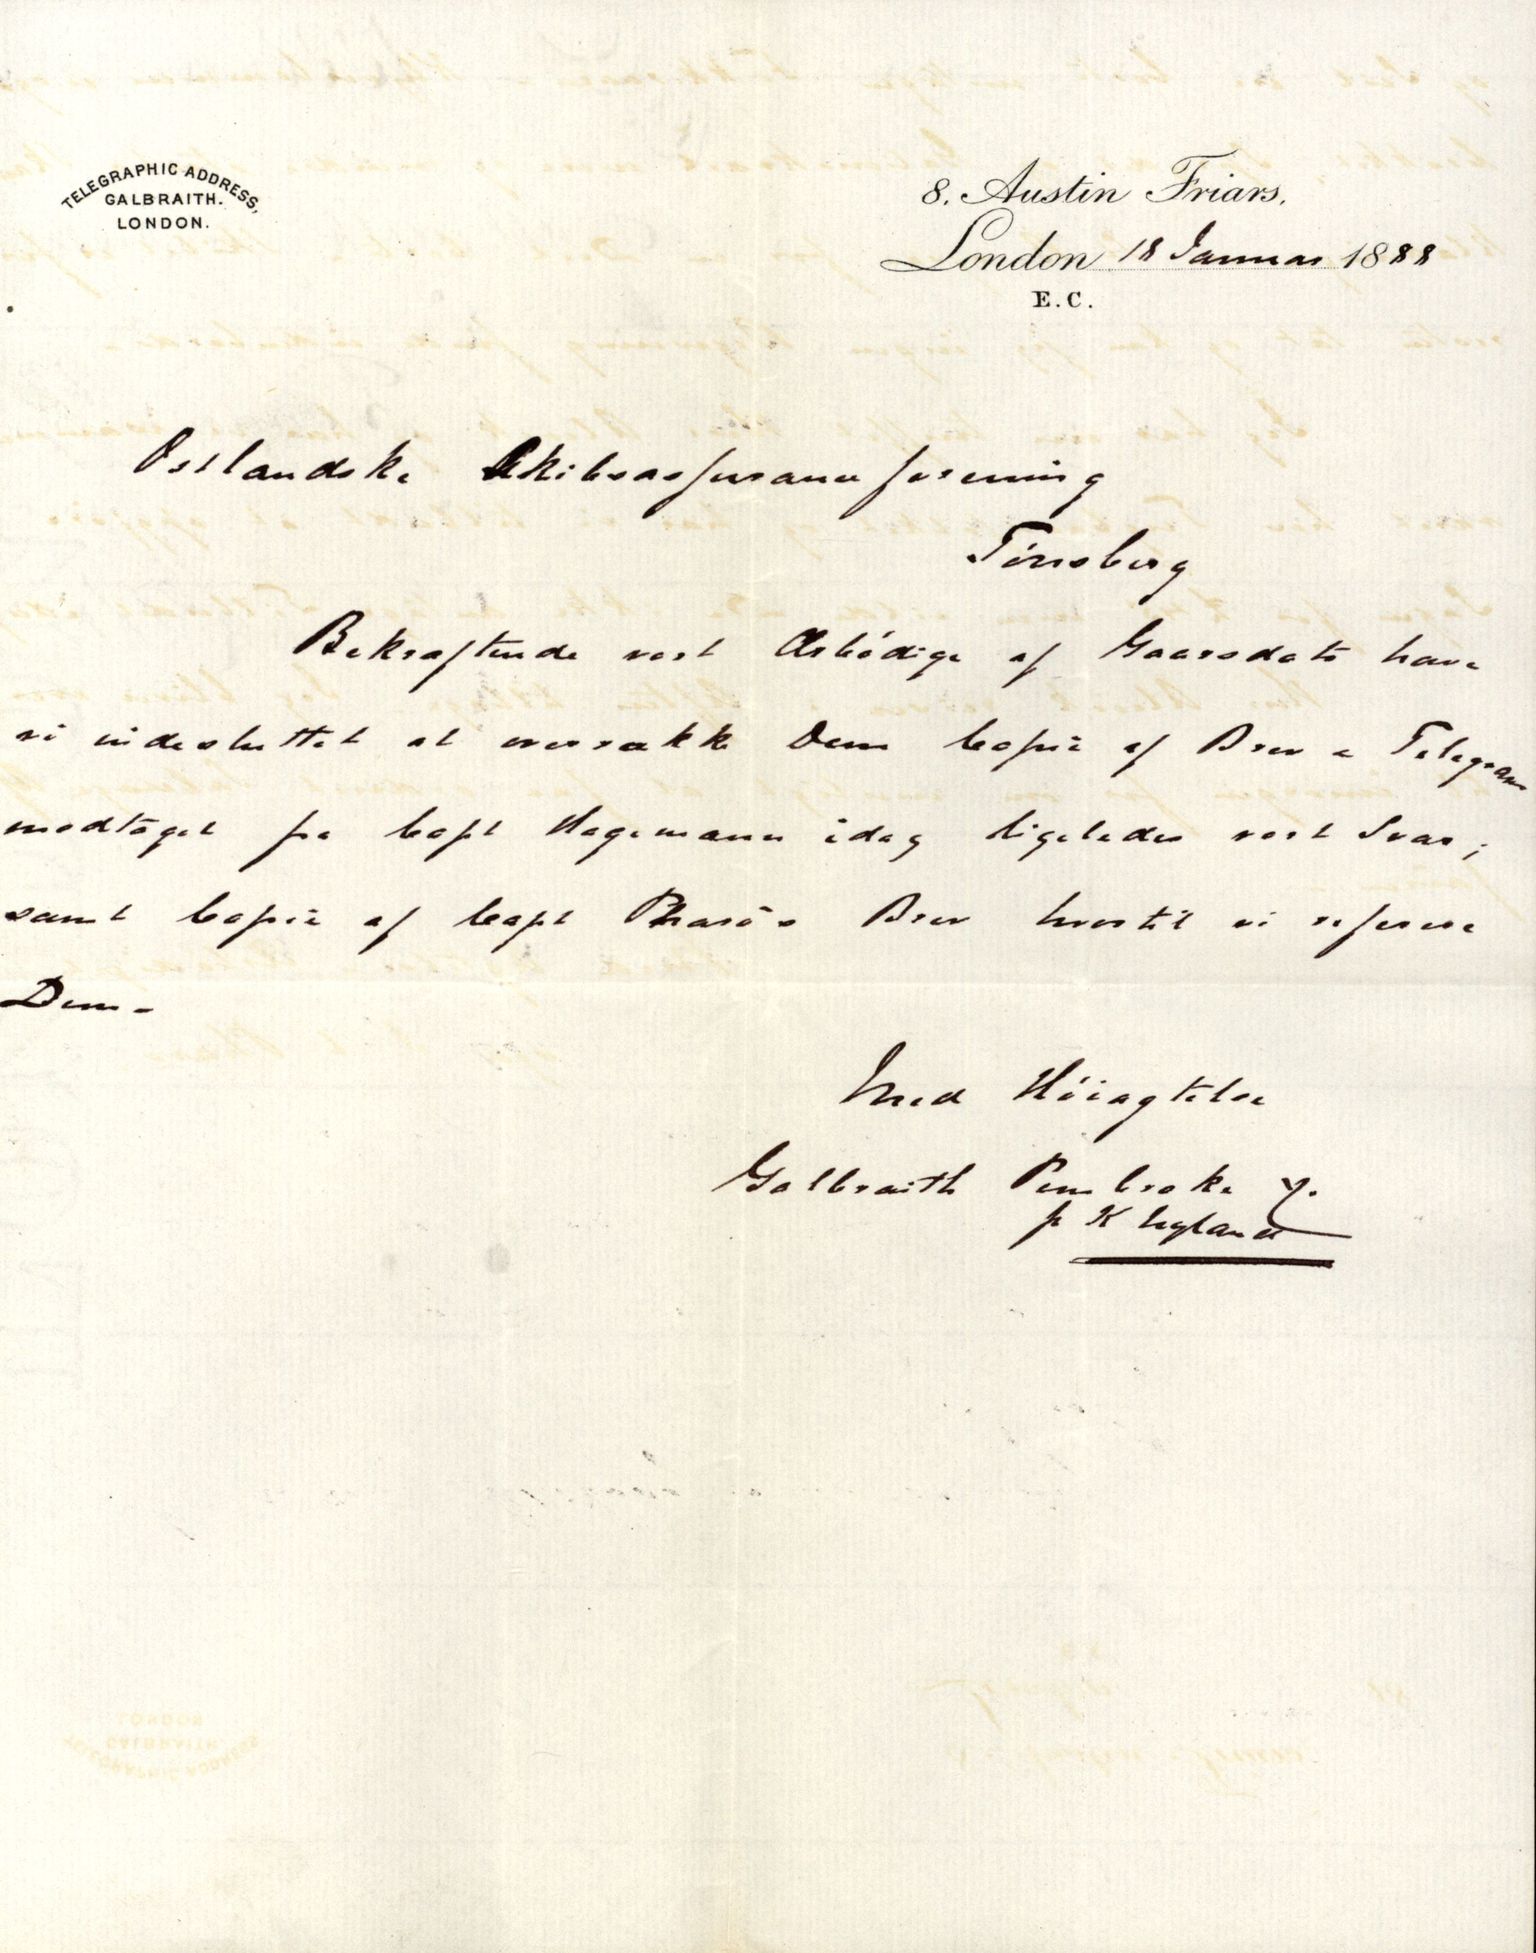 TELEGRAPHIC ADDRESS,
GALBRAITH.
LONDON.
8. Austin Friars,
London 18 Januar 1888
E.C.
Østlandske Skibsassuranceforening
Tönsberg
Bekræftende vort Ærbödige af Gaarsdato have
vi indesluttet at overrække Dem Copie af Brev & Telegram
modtaget fra Capt Hagemann idag ligeledes vort Svar,
samt Copie af Capt Brev hvortil vi referere
Dem.
Med Höiagtelse
Galbraith Pembroke
p K